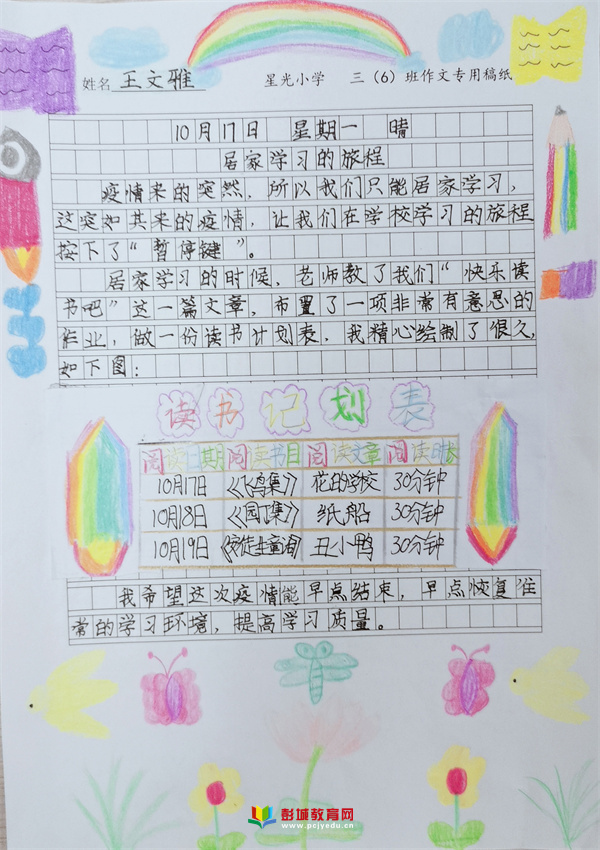 姓名 王文雅 星光小学 三（6）班作文专用稿纸
10月17日 星期一 晴
居家学习的旅程
疫情来的突然，所以我们只能居家学习，
这突如其来的疫情，让我们在学校学习的旅程
按下了“暂停键”。
居家学习的时候，老师教了我们“快乐读
书吧”这一篇文章，布置了一项非常有意思的
作业，做一份读书计划表，我精心绘制了很久，
如下图：
读书记划表
阅读日期 阅读书目 阅读文章 阅读时长
10月17日 《飞鸟集》 花的学校 30分钟
10月18日 《园丁集》 纸船 30分钟
10月19日 《安徒生童话》 丑小鸭 30分钟
我希望这次疫情能早点结束，早点恢复往
常的学习环境，提高学习质量。
彭城教育网
www.pcjyedu.cn